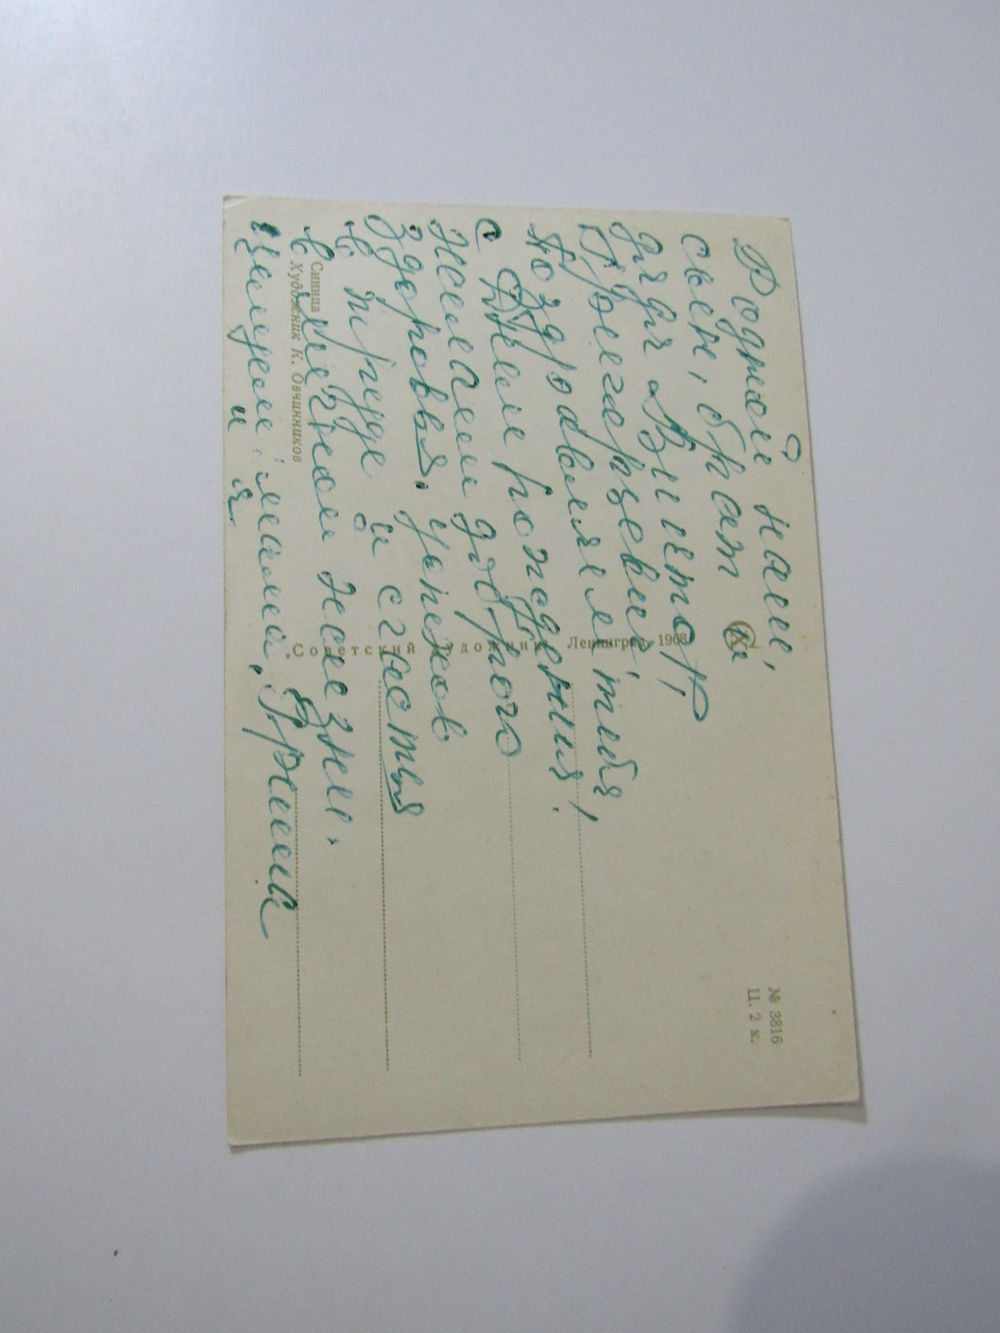 Родной наш,
сын, брат и
дядя Виктор
поздравляем тебя,
с Днем рождения!
Желаем доброго
здоровья, успехов
в труде и счастья
в личной жизни.
Целуем: мама,
и я
Синица
Художник К. Овчинников
Советский художник Ленинград 1968
№ 3816
Ц. 2 к.